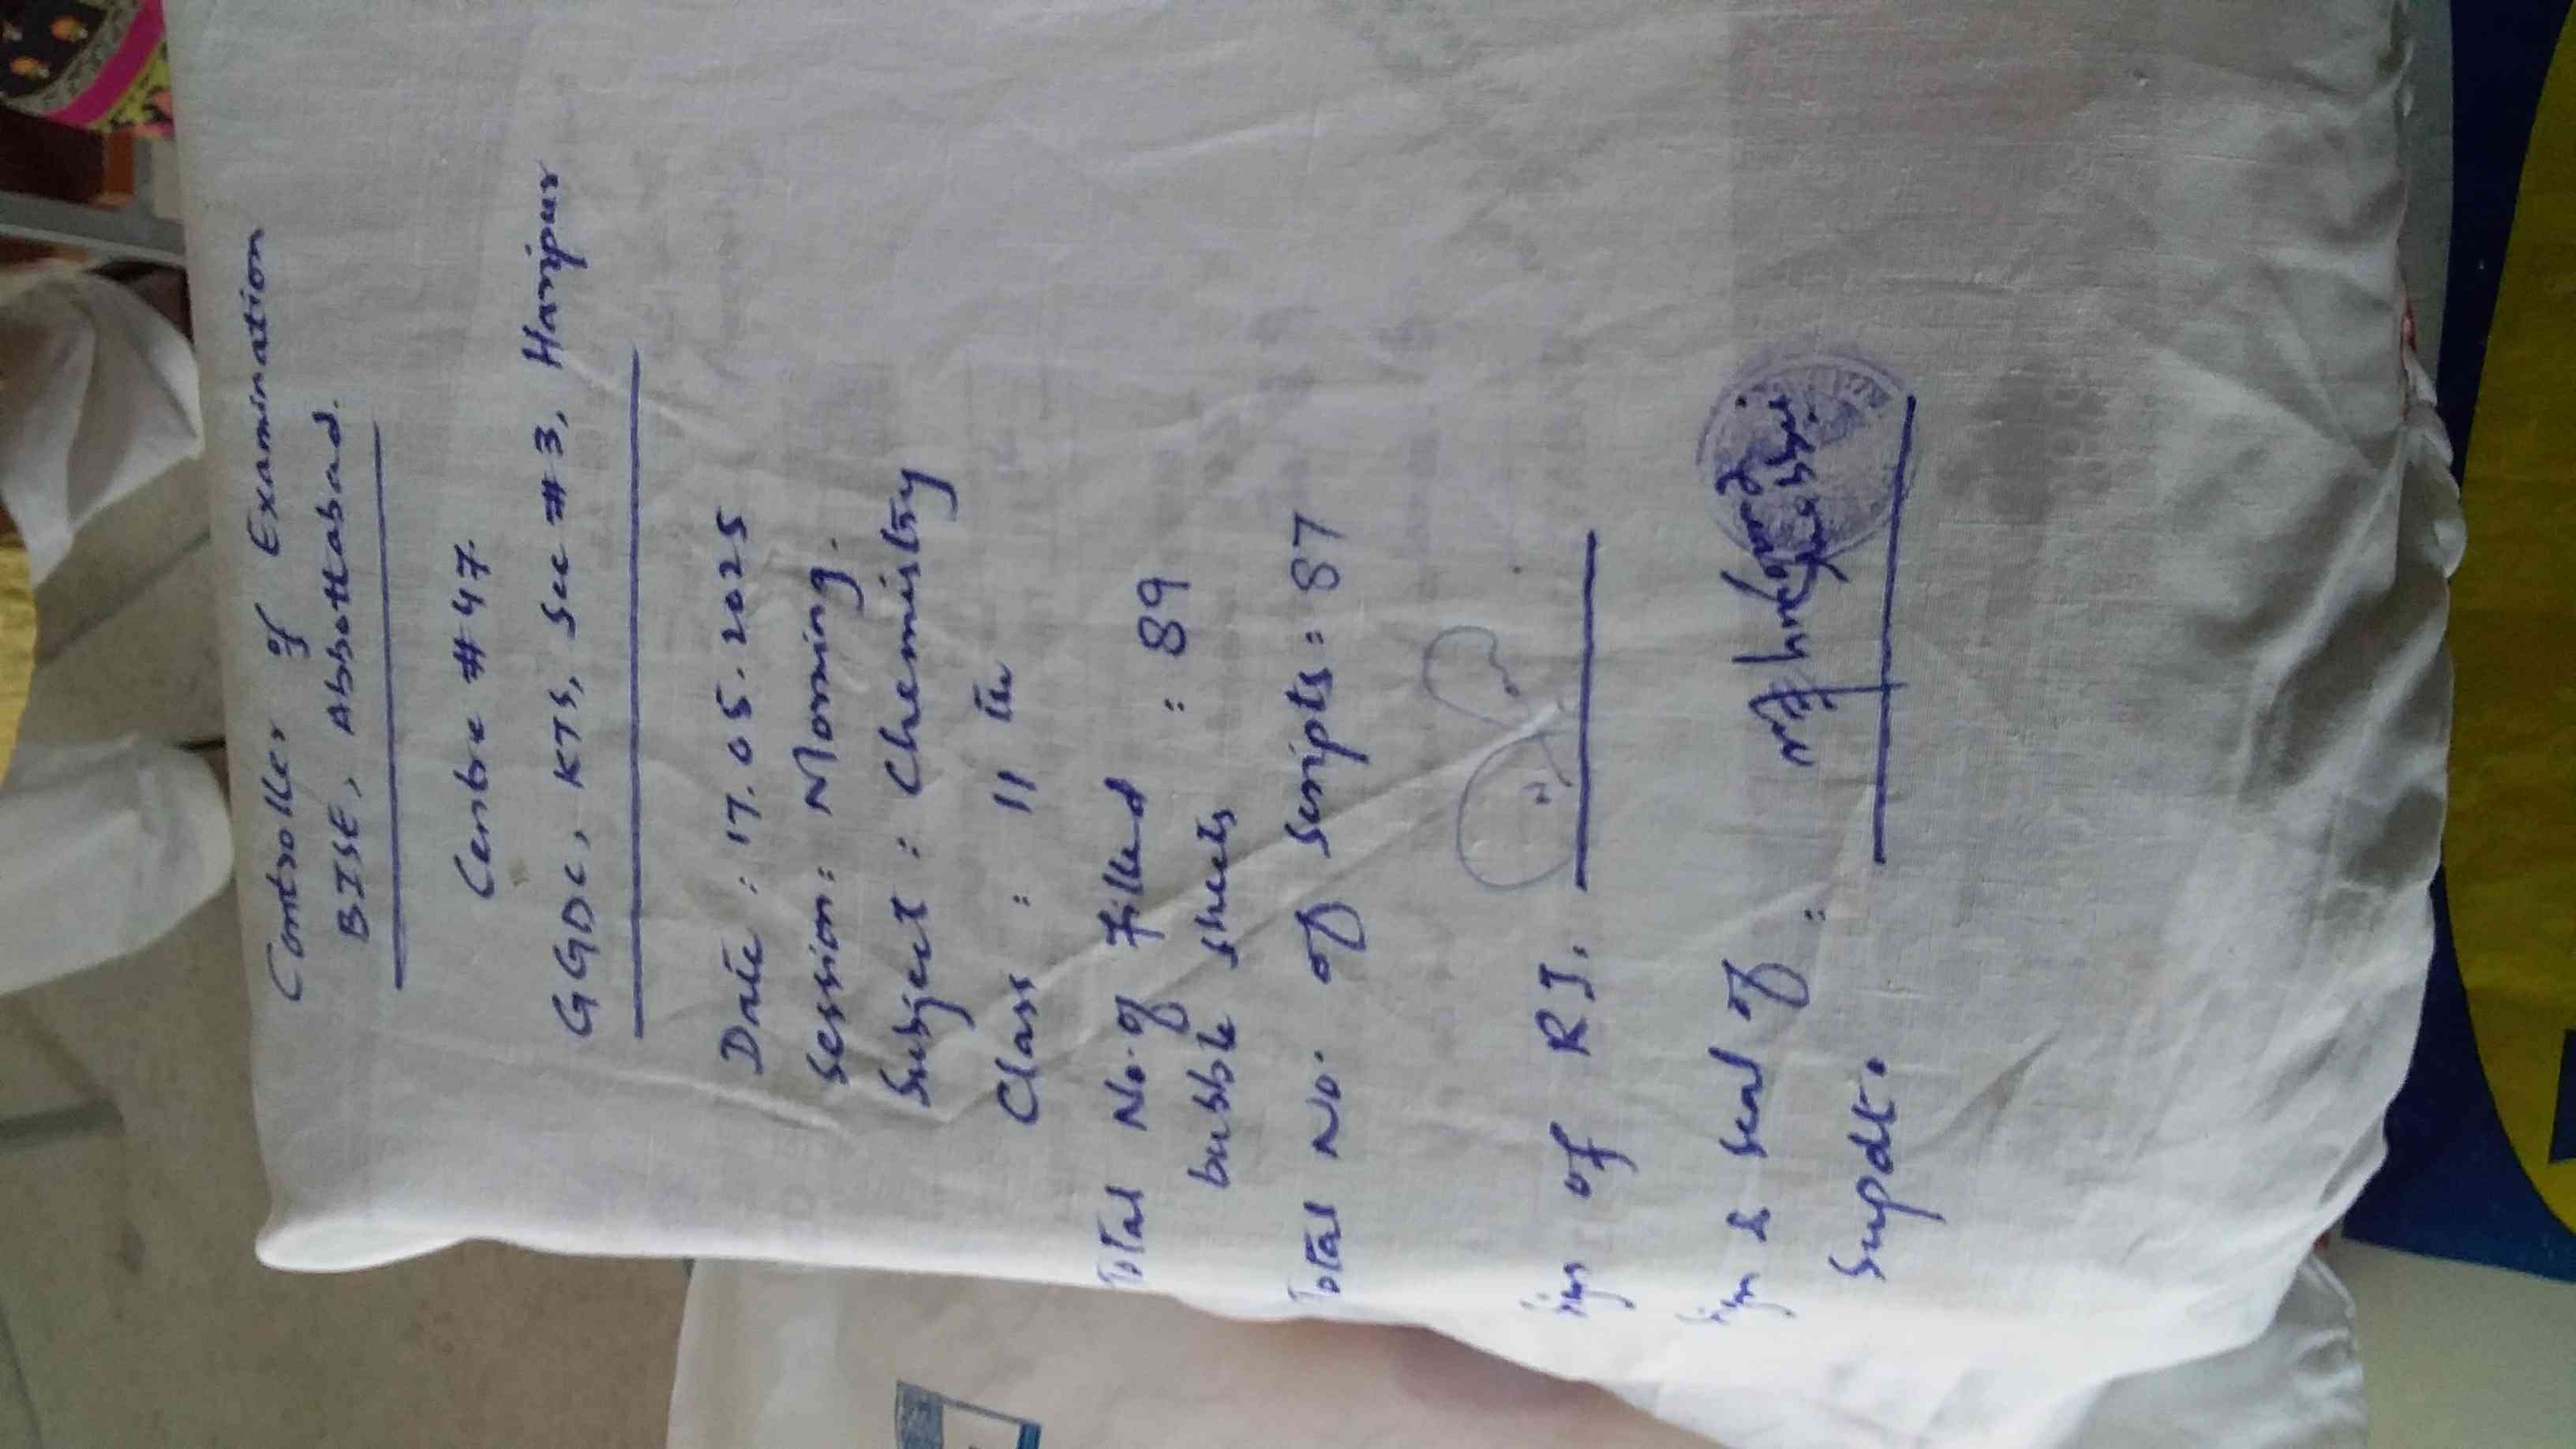 Controller of Examination
BISE, Abbottabad.
Centre # 47.
GGDC, KTS, Sec # 3, Haripur
Date : 17.05.2025
Session : Morning.
Subject : Chemistry
Class : 11 th
Total No. of filled : 89
bubble sheets
Total No. of scripts : 87
Sign of R.I.
Sign & seal of :
Supdt.